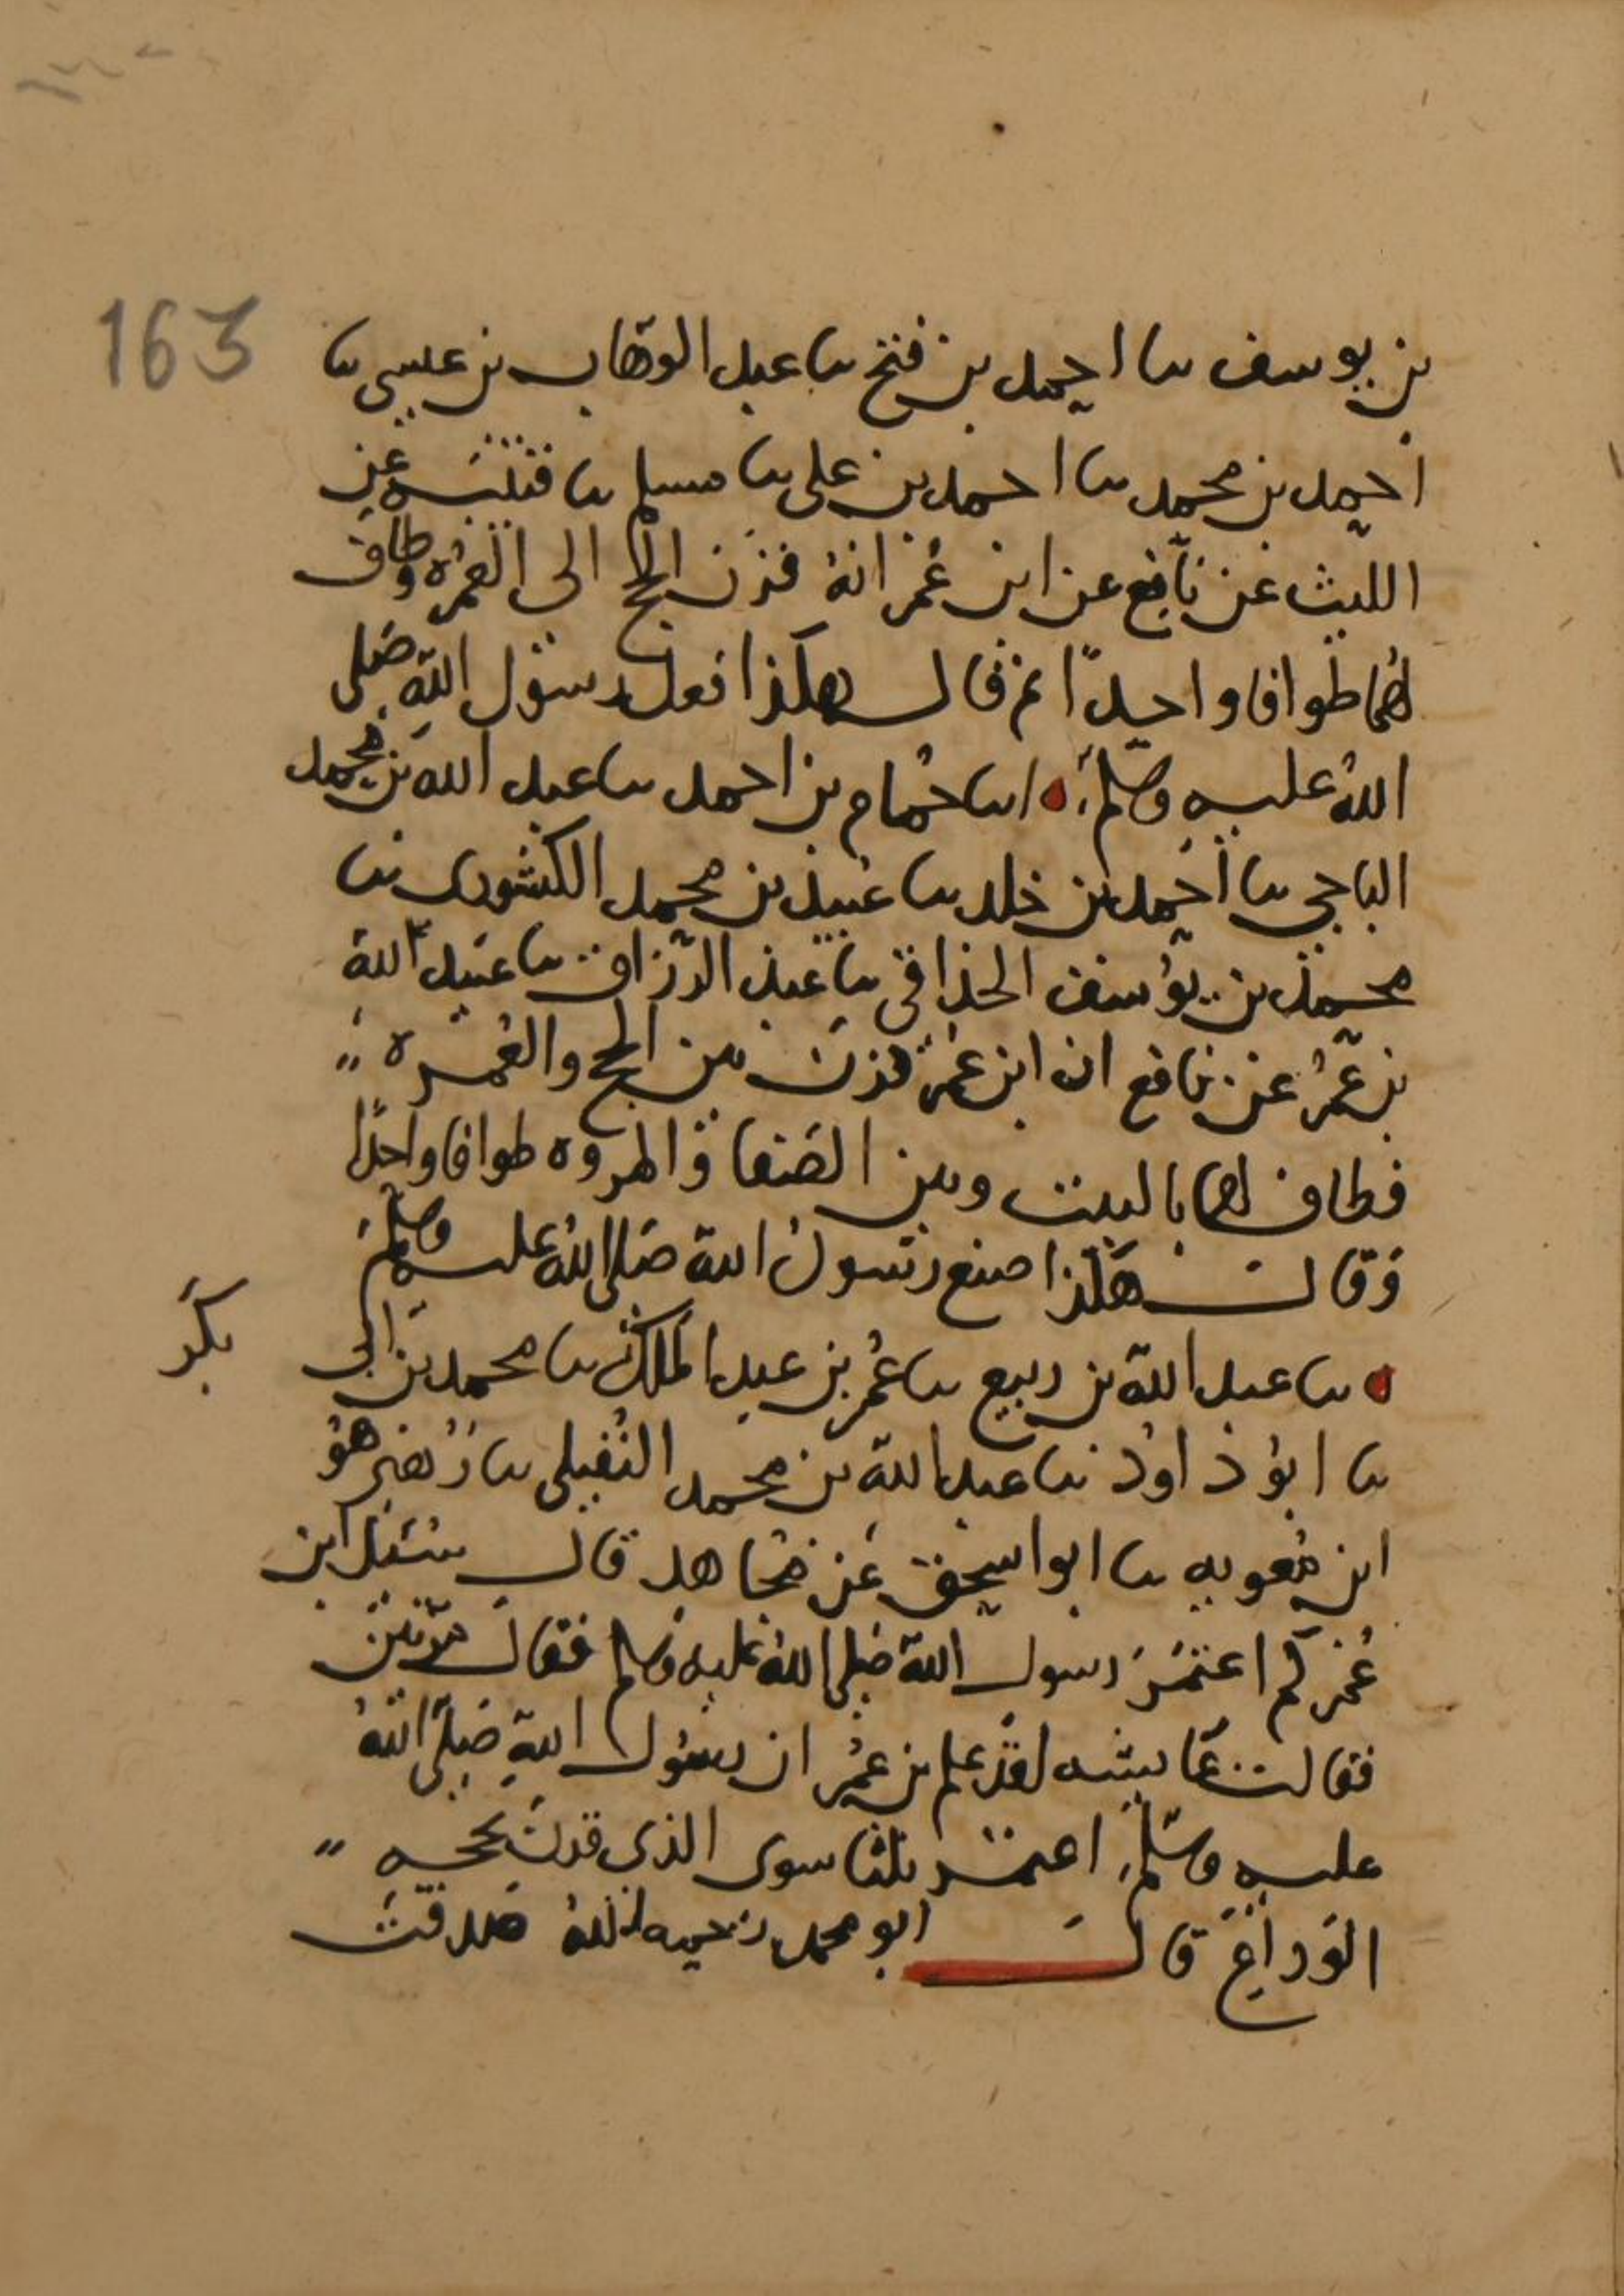 163
بن يوسف ىا احمد بن فتح ىا عبد الوهاب بن عيسى ىا
احمد بن محمد ىا احمد بن على ىا مسلم ىا قتيبه عن
الليث عن نافع عن ابن عمر انه قرن الحج الى العمره وطاف
لهما طوافا واحدًا ثم قال هكذا فعل رسول الله صلى
الله عليه وسلم ىا حمام بن احمد ىا عبد الله بن محمد
الباجي ىا احمد بن خلد ىا عبيد بن محمد الكشورى ىا
محمد بن يوسف الحذاقي ىا عبد الرزاق ىا عبيد الله
بن عمر عن نافع ان ابن عمر قرن بين الحج والعمره
فطاف لهما بالبيت وبين الصفا والمروه طوافا واحدًا
وقال هكذا صنع رسول الله صلى الله عليه وسلم
ىا عبد الله بن ربيع ىا عمر بن عبد الملك ىا محمد بن ابى
بكر
ىا ابو داود ىا عبد الله بن محمد النفيلى ىا زهير هو
ابن معويه ىا ابو اسحق عن مجاهد قال سئل ابن
عمر كم اعتمر رسول الله صلى الله عليه وسلم فقال مرتين
فقالت عايشه لقد علم بن عمر ان رسول الله صلى الله
عليه وسلم اعتمر ثلثا سوى الذى قرن بحجه
الوداع قال ابو محمد رحمه الله صدقت